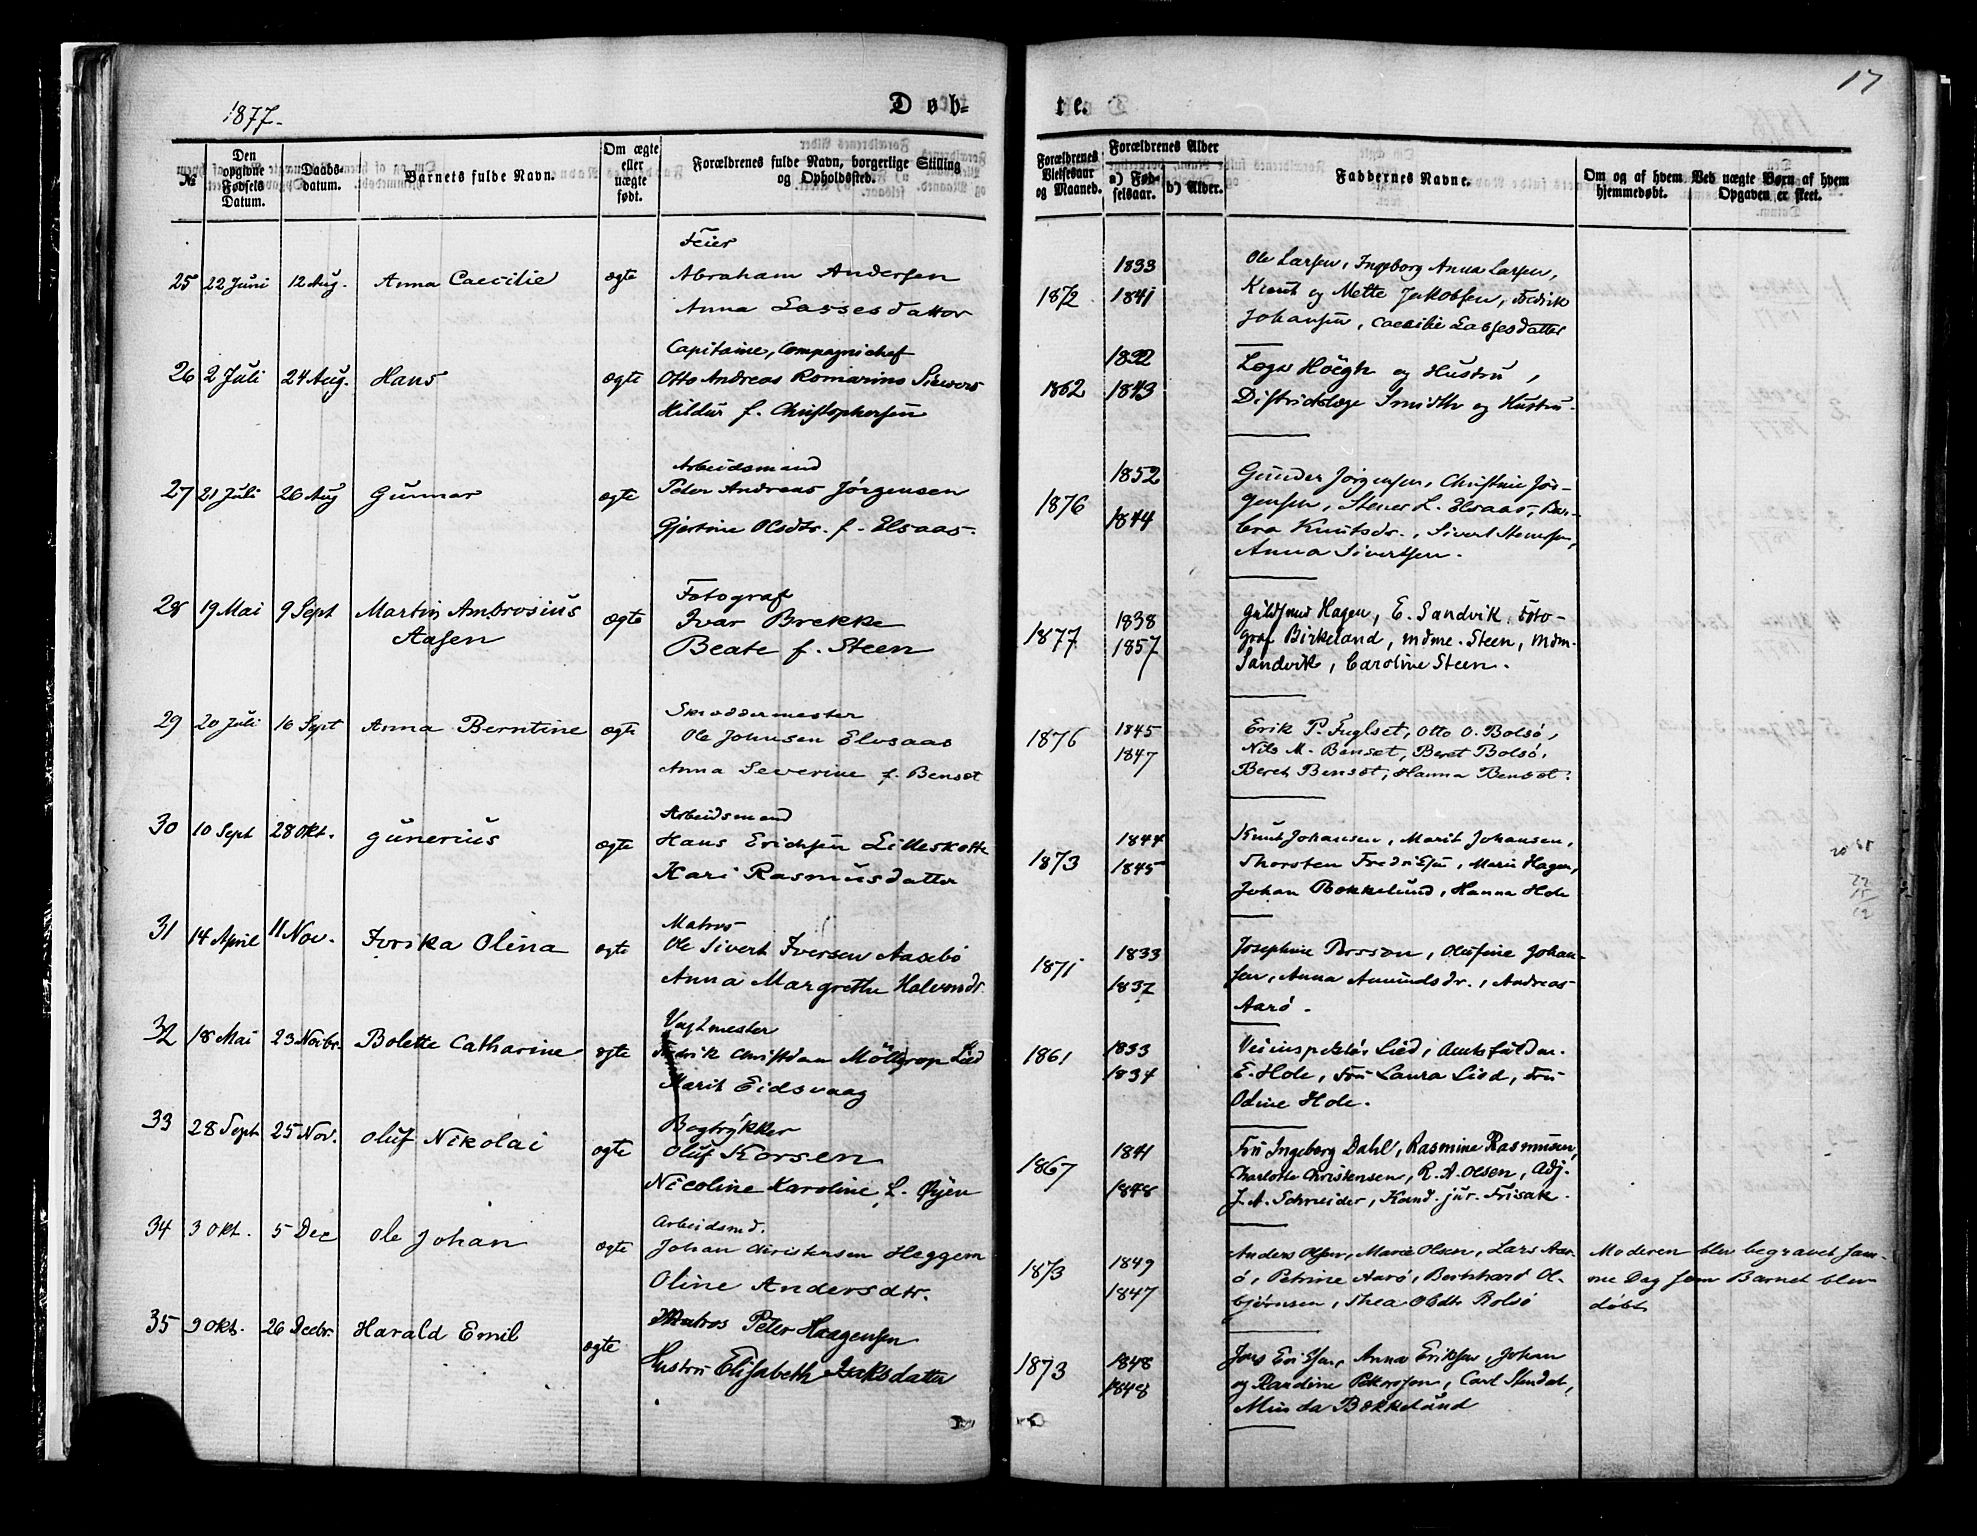 1877.
Døb-
te.
17
№
Den opgivne Fødsels Datum.
Daabs-datum.
Barnets fulde Navn.
Om ægte eller uægte født.
Forældrenes fulde Navn, borgerlige Stilling og Opholdssted.
Forældrenes Vielsesaar og Maaned.
Forældrenes Alder
a) Fødselsaar.
b) Alder.
Faddernes Navne.
Om og af hvem hjemmedøbt.
Ved uægte Børn af hvem Opgaven er skeet.
Feier
25 22 Juni 12 Aug. Anna Caecilie ægte Abraham Andersen
Anna Lassesdatter
1872 1833 1841
Ole Larsen, Ingeborg Anna Larsen,
Knut og Mette Jakobsen, Fredrik
Johansen, Caecilie Lassesdatter
Capitaine, Compagnichef
26 2 Juli 24 Aug. Hans ægte Otto Andreas Romarino Sievers
Hildur f. Christophersen
1862 1832 1843
Læge Höegh og Hustru,
Distriktslæge Smidth og Hustru.
Arbeidsmand
27 21 Juli 26 Aug Gunnar ægte Peter Andreas Jørgensen
Gjertine Olsdtr. f. Elsaas.
1876 1852 1844
Gunder Jørgensen, Christine Jør-
gensen, Stener L. Elsaas, Bar-
bra Knutsdr., Sivert Stensen,
Anna Sivertsen.
Fotograf
28 19 Mai 9 Sept Martin Ambrosius Aasen ægte Ivar Brekke
Beate f. Steen
1877 1838 1857
Guldsmed Hagen, E. Sandvik, Foto-
graf Birkeland, Mdme. Steen, Mdm-
Sandvik, Caroline Steen.
Skræddermester
29 20 Juli 16 Sept Anna Berntine ægte Ole Johnsen Elvsaas
Anna Severine f. Bensæt
1876 1845 1847
Erik P. Fuglset, Otto O. Bolsø,
Nils M. Bensæt, Beret Bolsø,
Beret Bensæt, Hanna Bensæt.
Arbeidsmand
30 10 Sept 28 Okt. Gunerius ægte Hans Erichsen Lilleskotte
Kari Rasmusdatter
1873 1844 1845
Knut Johansen, Marit Johansen,
Thorsten Fredriksen, Marie Hagen,
Johan Bekkelund, Hanna Hole
Matros
31 14 April 11 Nov. Ivrika Olina ægte Ole Sivert Iversen Aasebö
Anna Margrethe Halvorsdr.
1871 1833 1837
Josephine Persson, Olufine Johan-
sen, Anna Amundsdr., Andreas
Aarö.
Vagtmester
32 18 Mai 23 Novbr. Bolette Catharine ægte Fredrik Christian Möllerop Lied
Marit Eidsvaag
1861 1833 1834
Veiinspektør Lied, Amtsfuldm.
E. Hole, Fru Laura Lied, Fru
Odine Hole.
Bogtrykker
33 28 Sept 25 Nov. Oluf Nikolai ægte Oluf Korsen
Nicoline Karoline f. Øyen
1867 1841 1848
Fru Ingeborg Dahl, Rasmine Rasmusen,
Charlotte Christensen, R. A. Olsen, Adj.
J. A. Schneider, Kand. jur. Frisak.
Arbeidsmd.
34 3 Okt. 5 Dec Ole Johan ægte Johan Christensen Heggem
Oline Andersdtr.
1873 1849 1847
Anders Olsen, Marie Olsen, Lars Aar-
ö, Petrine Aarö, Bernhard Ol-
bjørnsen, Thea Olsdtr Bolsö
Moderen blev begravet sam-
me Dag som Barnet blev
døbt
35 9 Okt. 26 Decbr. Harald Emil ægte Matros Peter Haagensen
Hustru Elisabeth Isaksdatter
1873 1848 1848
Jens Eriksen, Anna Eriksen, Johan
og Randine Petersen, Carl Stendal,
Minda Bekkelund